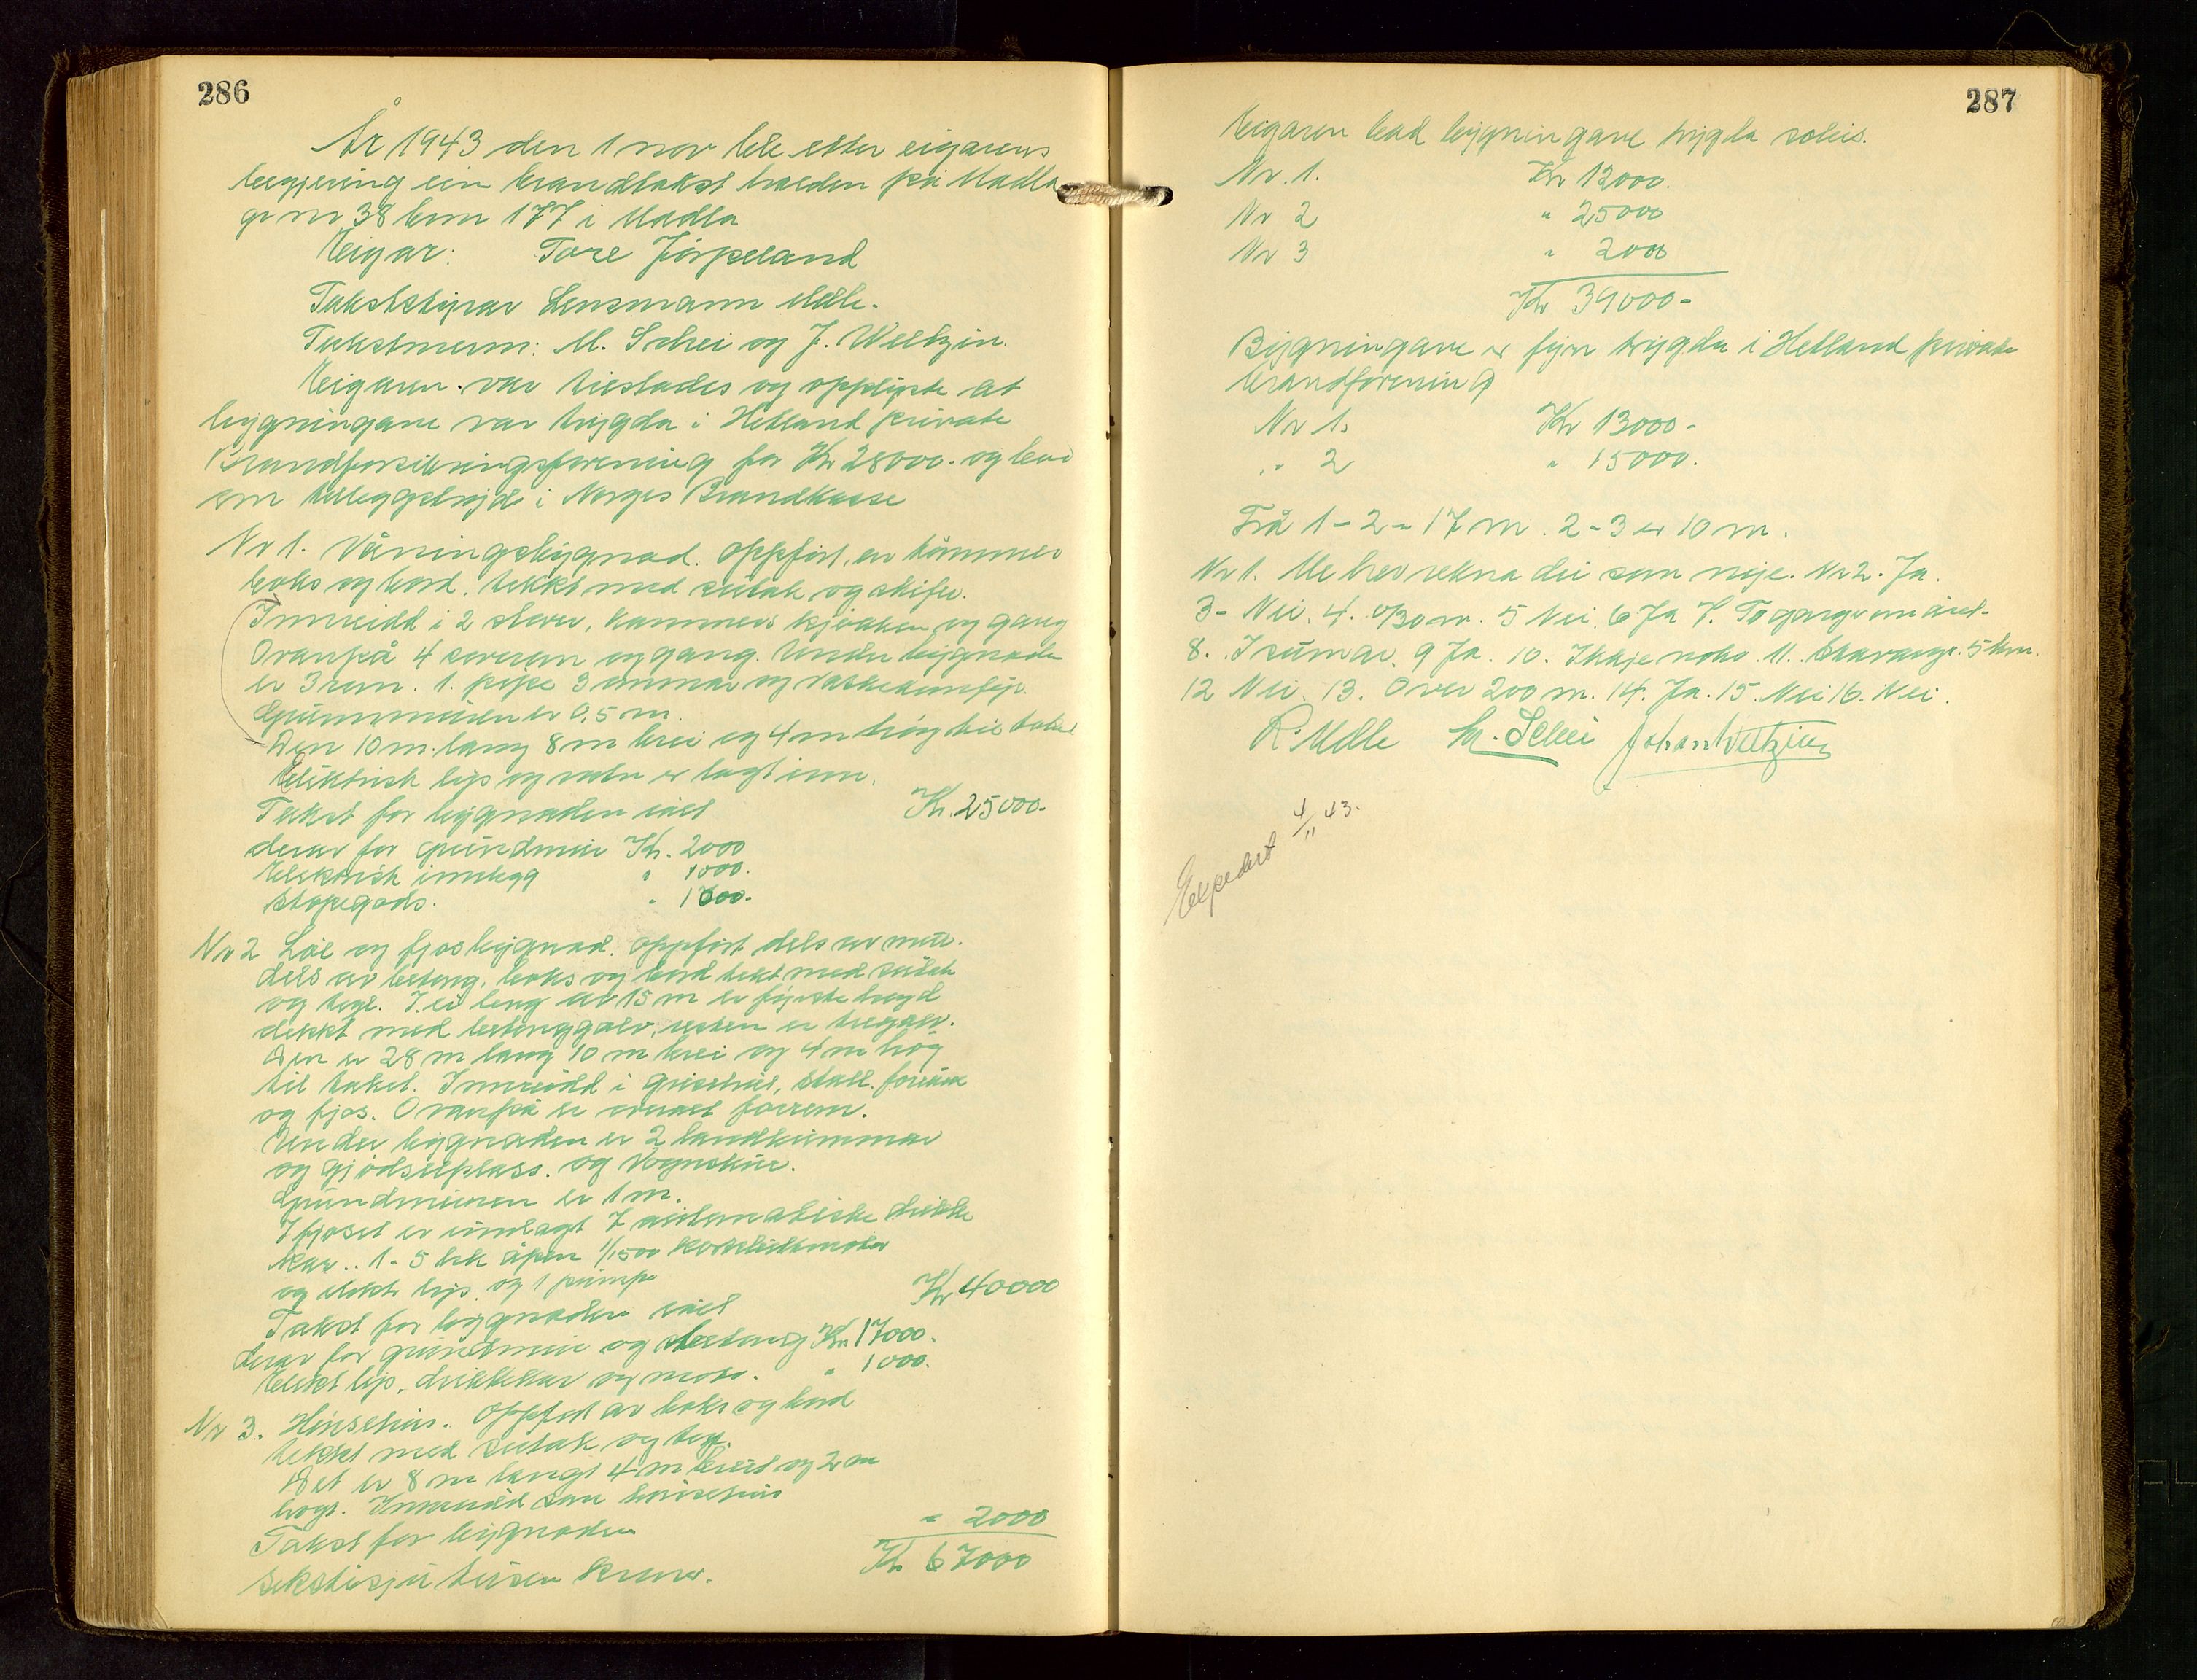 286
År 1943 den 1 nov ble etter eigarens
begjering ein brandtakst halden på Madla
gr nr 38 brnr 177 i Madla
Eigar: Tore Jörpeland
Takststyrar Lensmann Melle.
Takstmenn: M. Schei og J. Weltzin.
Eigaren var tilstades og opplyste at
bygningane var trygda i Hetland private
Brandforsikringsforening for Kr 28000. og bad
om tilleggstrygd i Norges Brandkasse
Nr 1. Våningsbygnad. Oppfört av tömmer
boks og bord, tekkt med sutak og skifer.
Innreidd i 2 stover, kammers kjöken og gang
Ovanpå 4 soverum og gang. Under bygnaden
er 3 rum. 1. pipe 3 omnar og vaskekomfyr.
Grunnmuren er 0,5 m.
Den 10 m. lang 8 m brei og 4 m höy til taket
Elektrisk lys og vatn er lagt inn.
Takst for bygnaden ialt Kr. 25000-
derav for grundmur Kr. 2000
Elektrisk innlegg " 1000.
Stöpegods. " 1000.
Nr 2 Löe og fjosbygnad. Oppfört dels av mur.
dels av betong, boks og bord tekt med sutak
og tegl. I ei leng av 15 m er fyrste högd
dekkt med betonggolv, resten er tregolv.
Den er 28 m lang 10 m brei og 4 m hög
til taket. Innreidd i grisehus, stall,
og fjos. Ovanpå er forrom.
Under bygnaden er 2 landkummar
og gjödselplass. og Vognskur.
Grundmuren er 1 m.
I fjoset er innlagt 7 automatiske drikke
kar.. 1- 5 hk åpen 1/1500
og elektr lys og 1 pumpe
Takst for bygnaden ialt Kr 40000
derav for grundmur og betong Kr 17000.
Elekt lys, drikkekar og motor. " 1000.
Nr 3. Hönsehus. Oppfört av boks og bord
tekkt med sutak og tegl.
Det er 8 m langt 4 m breit og 2 m
högt. Innreidd som hönsehus
Takst for bygnaden " 2000
Sekstisju tusen kroner. Kr 67000
287
Eigaren bad bygningane trygda soleis.
Nr. 1. Kr 12000.
Nr 2 " 25000
Nr 3 " 2000
Kr 39000-
Bygningane er fyrr trygda i Hetland private
brandforening
Nr 1. Kr 13000-
" 2 " 15000.
Frå 1 - 2 = 17 m. 2 - 3 er 10 m.
Nr 1. Me trer rekna dei som nye. Nr 2. Ja.
3- Nei. 4. 30 m. 5 Nei. 6 Ja 7. To gonger om året-
8. I sumar. 9 Ja. 10. Ikkje noko. 11. Stavanger. 5 km.
12 Nei. 13. Over 200 m. 14. Ja. 15. Nei 16. Nei.
R. Melle M. Schei Johan Weltzien
Expedert 4/11 43.